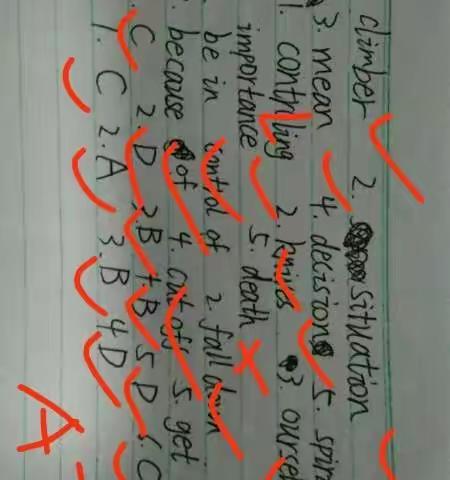 climber 2. situation
3. mean 4. decision 5. spirit
1. contrlling 2. knives 3. oursel
importance 5. death
be in control of 2. fall down
because of 4. cut off 5. get
C 2. D 3. B 4. B 5. D 6. C
1. C 2. A 3. B 4 D
A